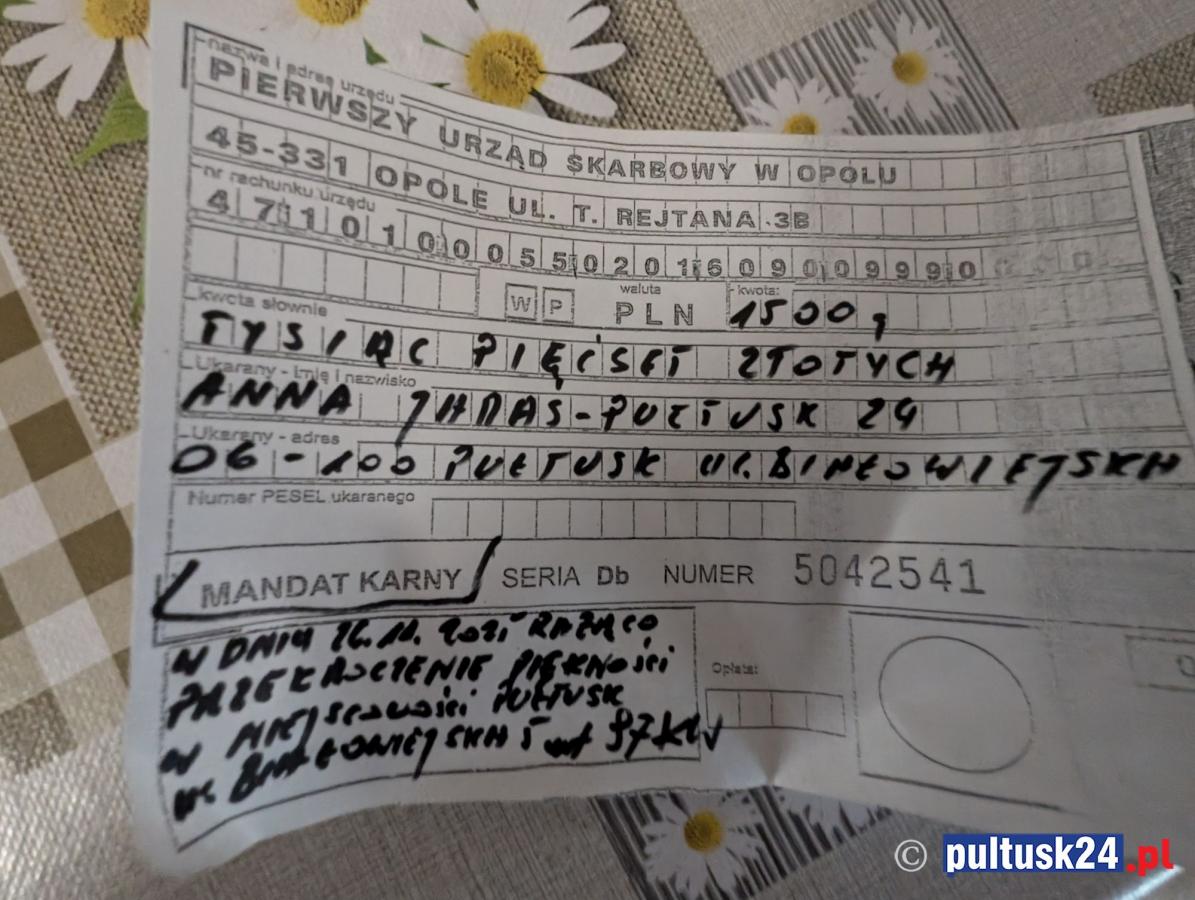 nazwa i adres urzędu
PIERWSZY URZĄD SKARBOWY W OPOLU
45-331 OPOLE UL. T. REJTANA 3B
nr rachunku urzędu
47101010055020160900999
W P waluta PLN kwota: 1500,
kwota słownie
TYSIĄC PIĘĆSET ZŁOTYCH
Ukarany - imię i nazwisko
ANNA JHNAS-PUŁTUSK 24
Ukarany - adres
06-100 PUŁTUSK UL. BIAŁOWIEJSKA
Numer PESEL ukaranego
MANDAT KARNY SERIA Db NUMER 5042541
W DNIU RAŻĄCO
PRZEKROCZENIE PIĘKNOŚCI
W MIEJSCOWOŚCI PUŁTUSK
UL. BIAŁOWIEJSKA
Opłata:
© pultusk24.pl